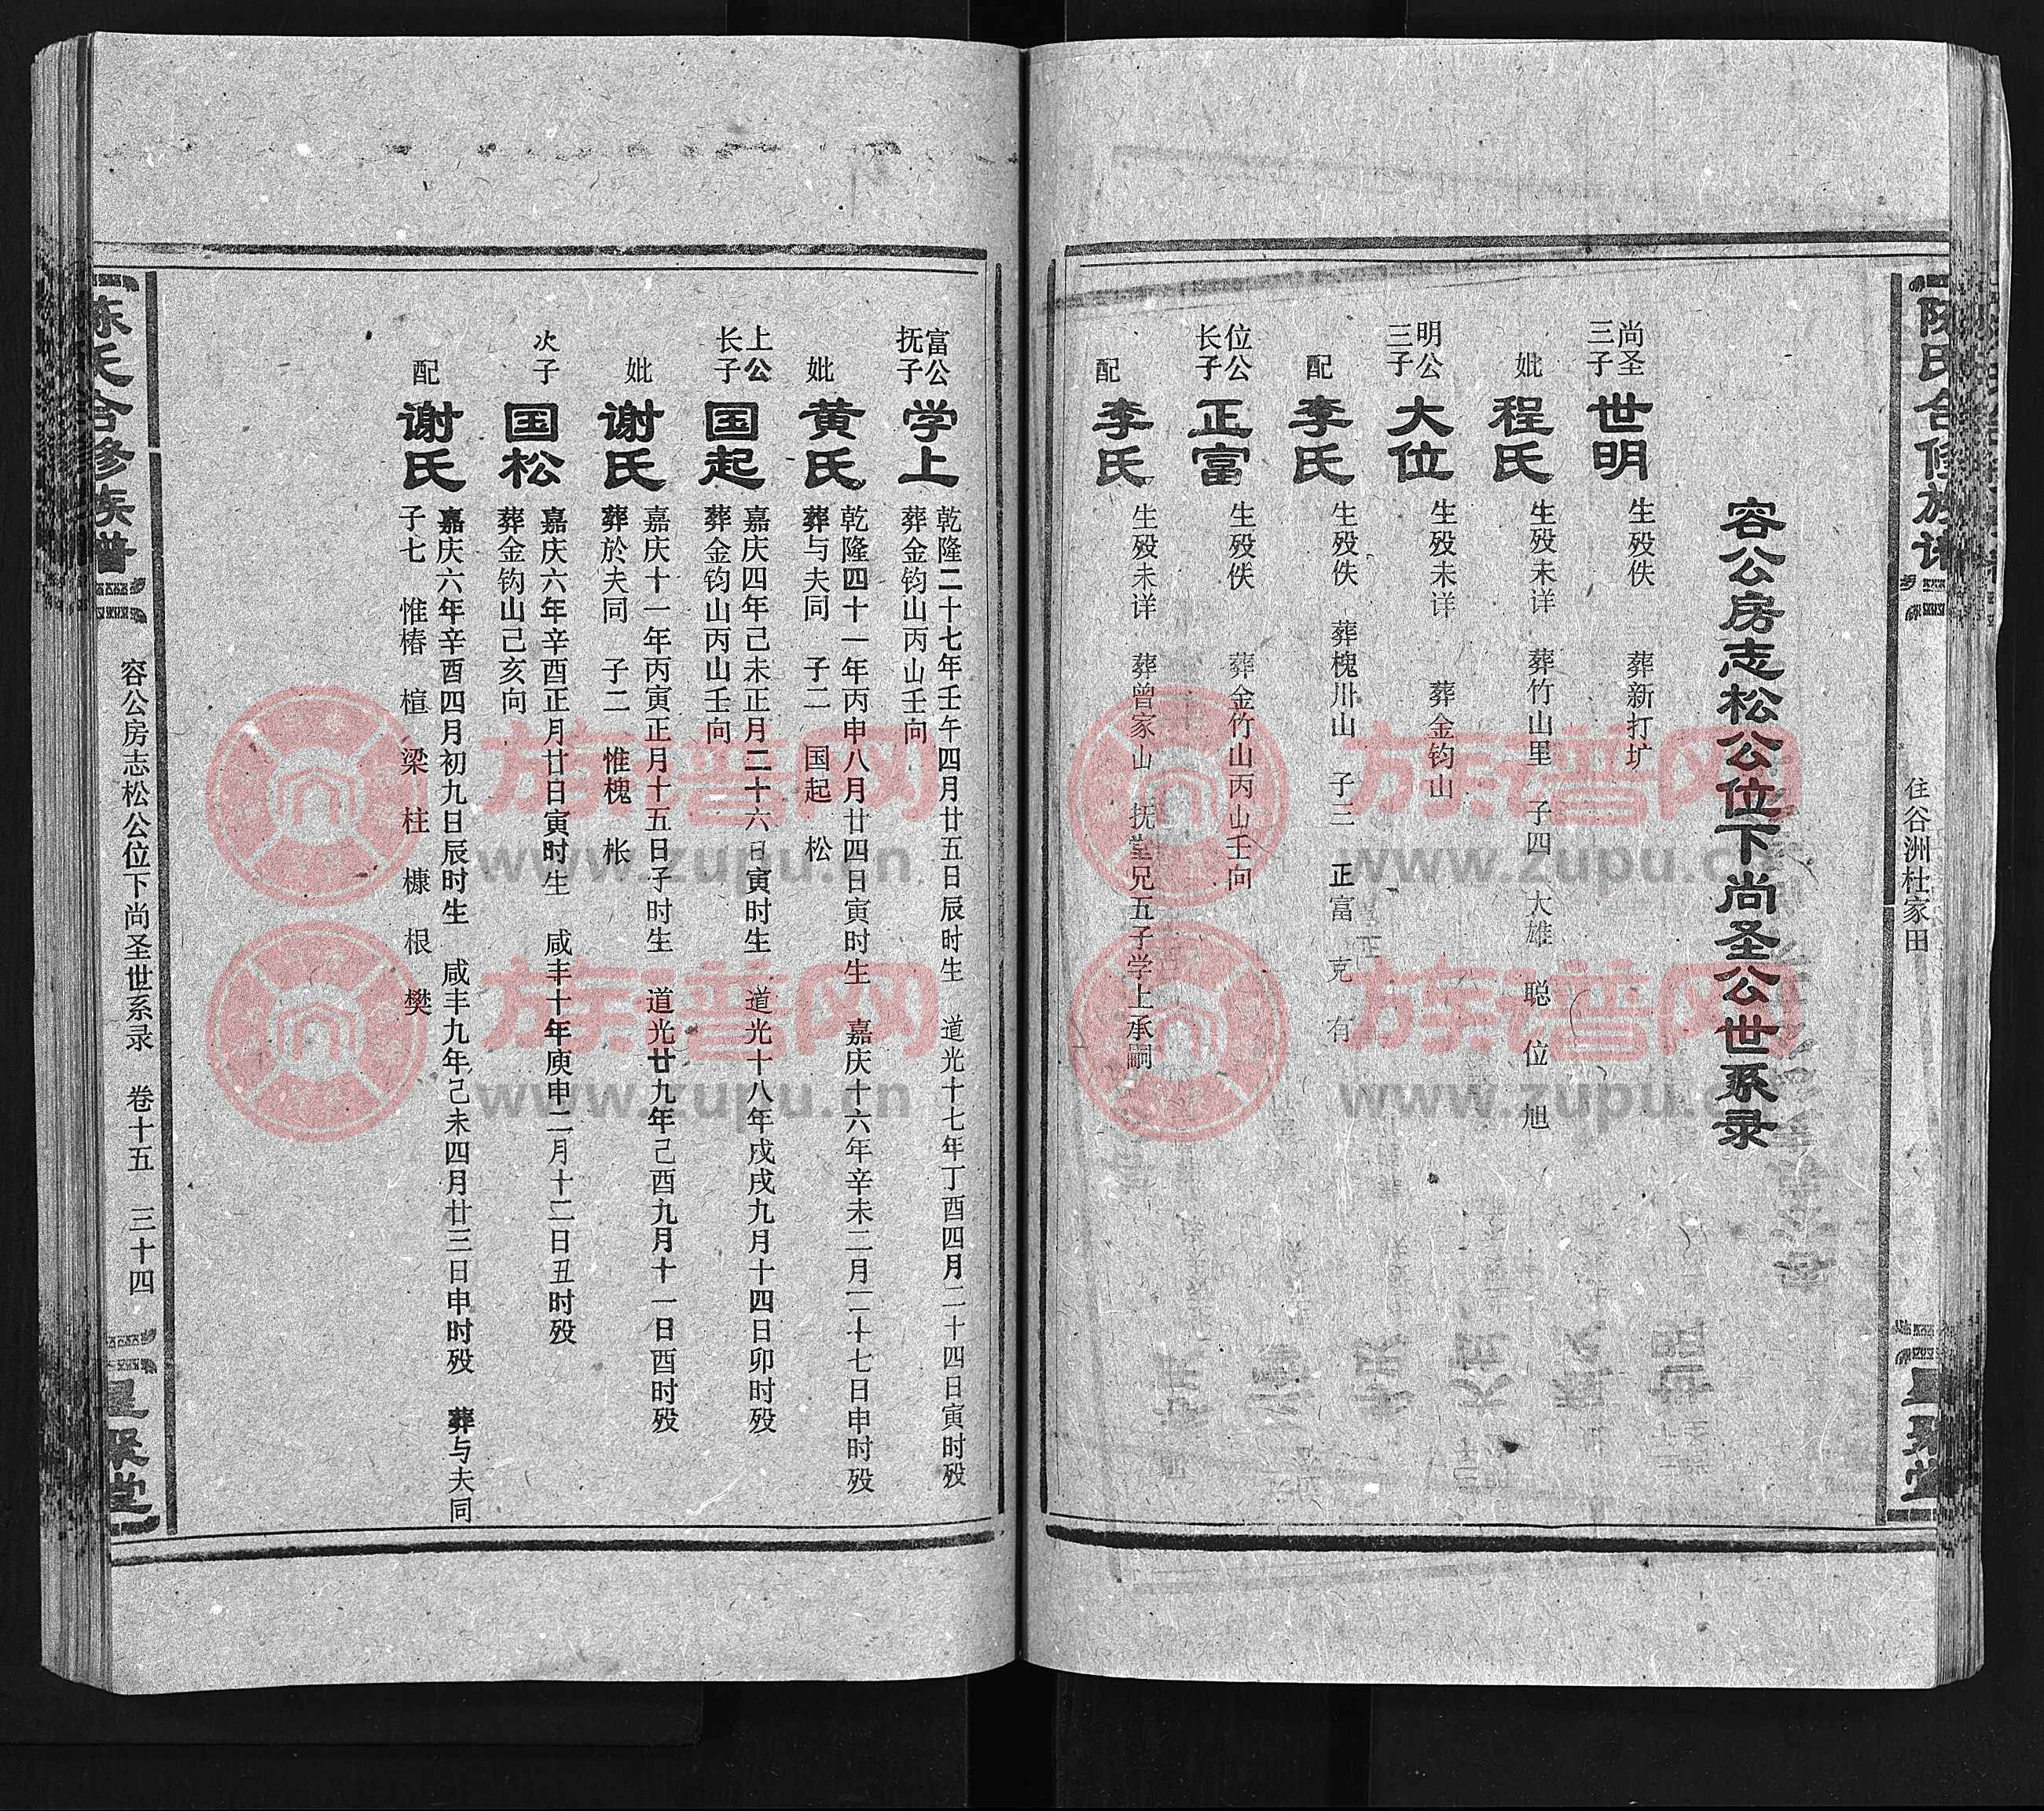 陈氏合修族谱
住谷洲杜家田
星聚堂
容公房志松公位下尚圣公世系录
尚圣三子 世明 生殁佚 葬新打圹
妣 程氏 生殁未详 葬竹山里 子四 大雄 聪 位 旭
明公三子 大位 生殁未详 葬金钧山
配 李氏 生殁佚 葬槐川山 子三 正富 克 有
位公长子 正富 生殁佚 葬金竹山丙山壬向
配 李氏 生殁未详 葬曾家山 抚堂兄五子学上承嗣
富公抚子 学上 乾隆二十七年壬午四月廿五日辰时生 道光十七年丁酉四月二十四日寅时殁
葬金钧山丙山壬向
妣 黄氏 乾隆四十一年丙申八月廿四日寅时生 嘉庆十六年辛未二月二十七日申时殁
葬与夫同 子二 国起 松
上公长子 国起 嘉庆四年己未正月二十六日寅时生 道光十八年戌戌九月十四日卯时殁
葬金钧山丙山壬向
妣 谢氏 嘉庆十一年丙寅正月十五日子时生 道光廿九年己酉九月十一日酉时殁
葬於夫同 子二 惟槐 枨
次子 国松 嘉庆六年辛酉正月廿日寅时生 咸丰十年庚申二月十二日丑时殁
葬金钧山己亥向
配 谢氏 嘉庆六年辛酉四月初九日辰时生 咸丰九年己未四月廿三日申时殁 葬与夫同
子七 惟椿 楦 梁 柱 槺 根 樊
陈氏合修族谱
容公房志松公位下尚圣世系录 卷十五 三十四
星聚堂
族谱网
www.zupu.cn
族谱网
www.zupu.cn
族谱网
www.zupu.cn
族谱网
www.zupu.cn